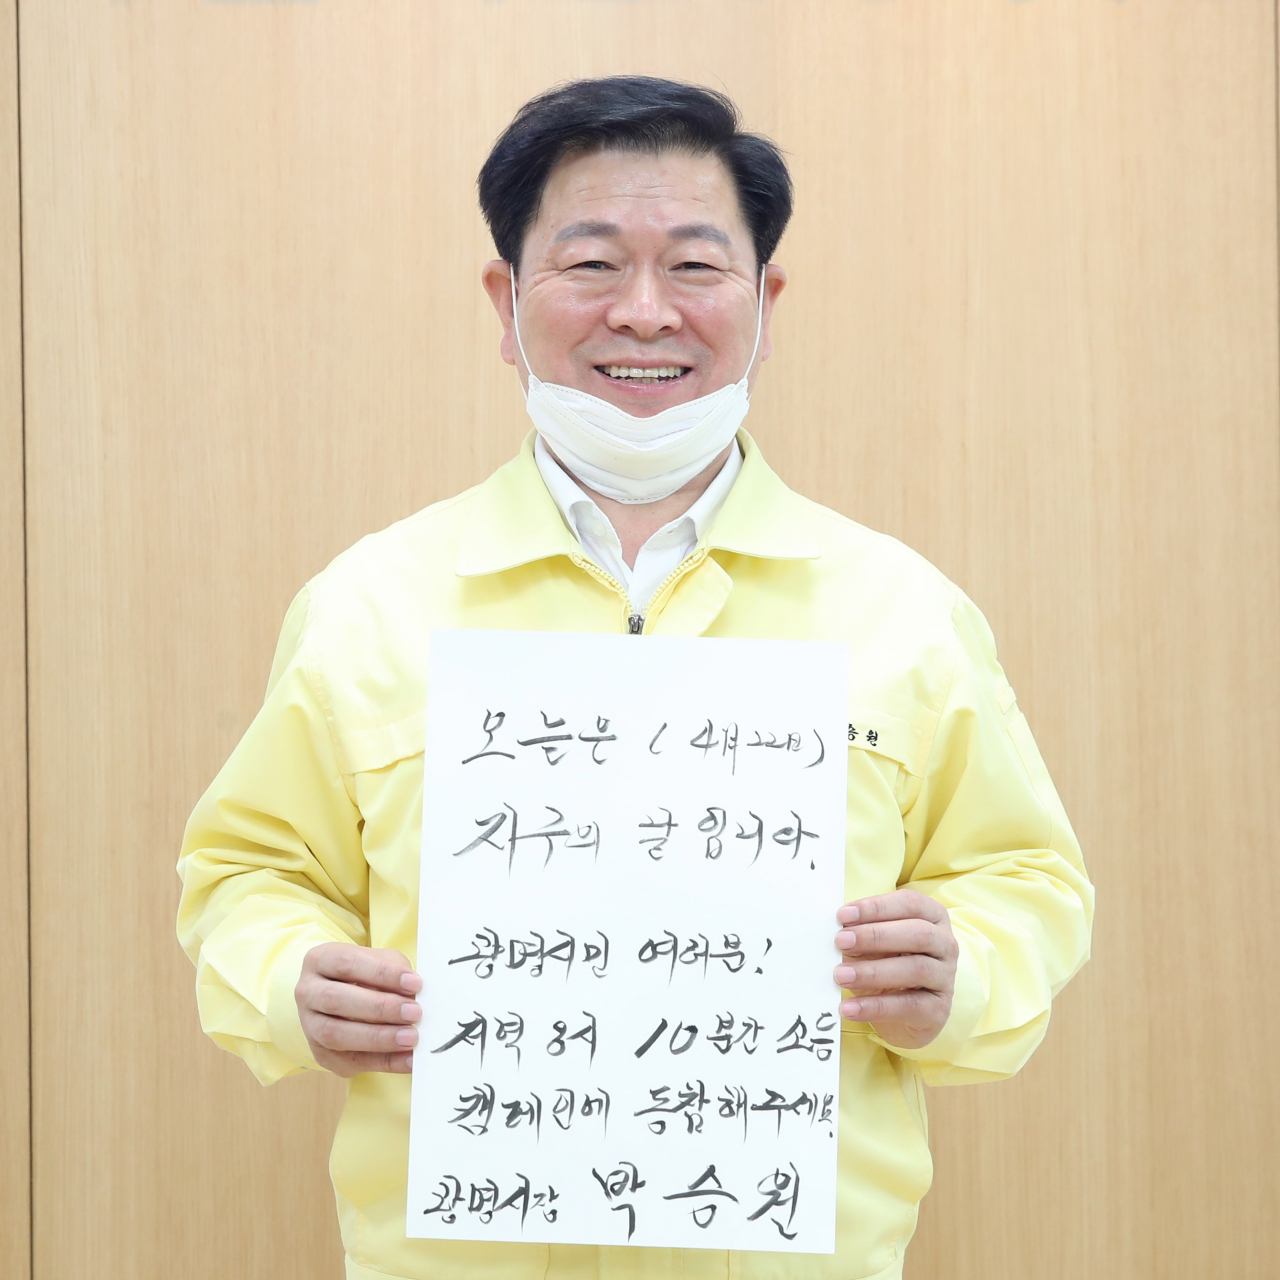 오늘은 (4月22日)
승원
지구의 날입니다.
광명시민 여러분!
저녁 8시 10분간 소등
캠페인에 동참해주세요.
광명시장 박승원